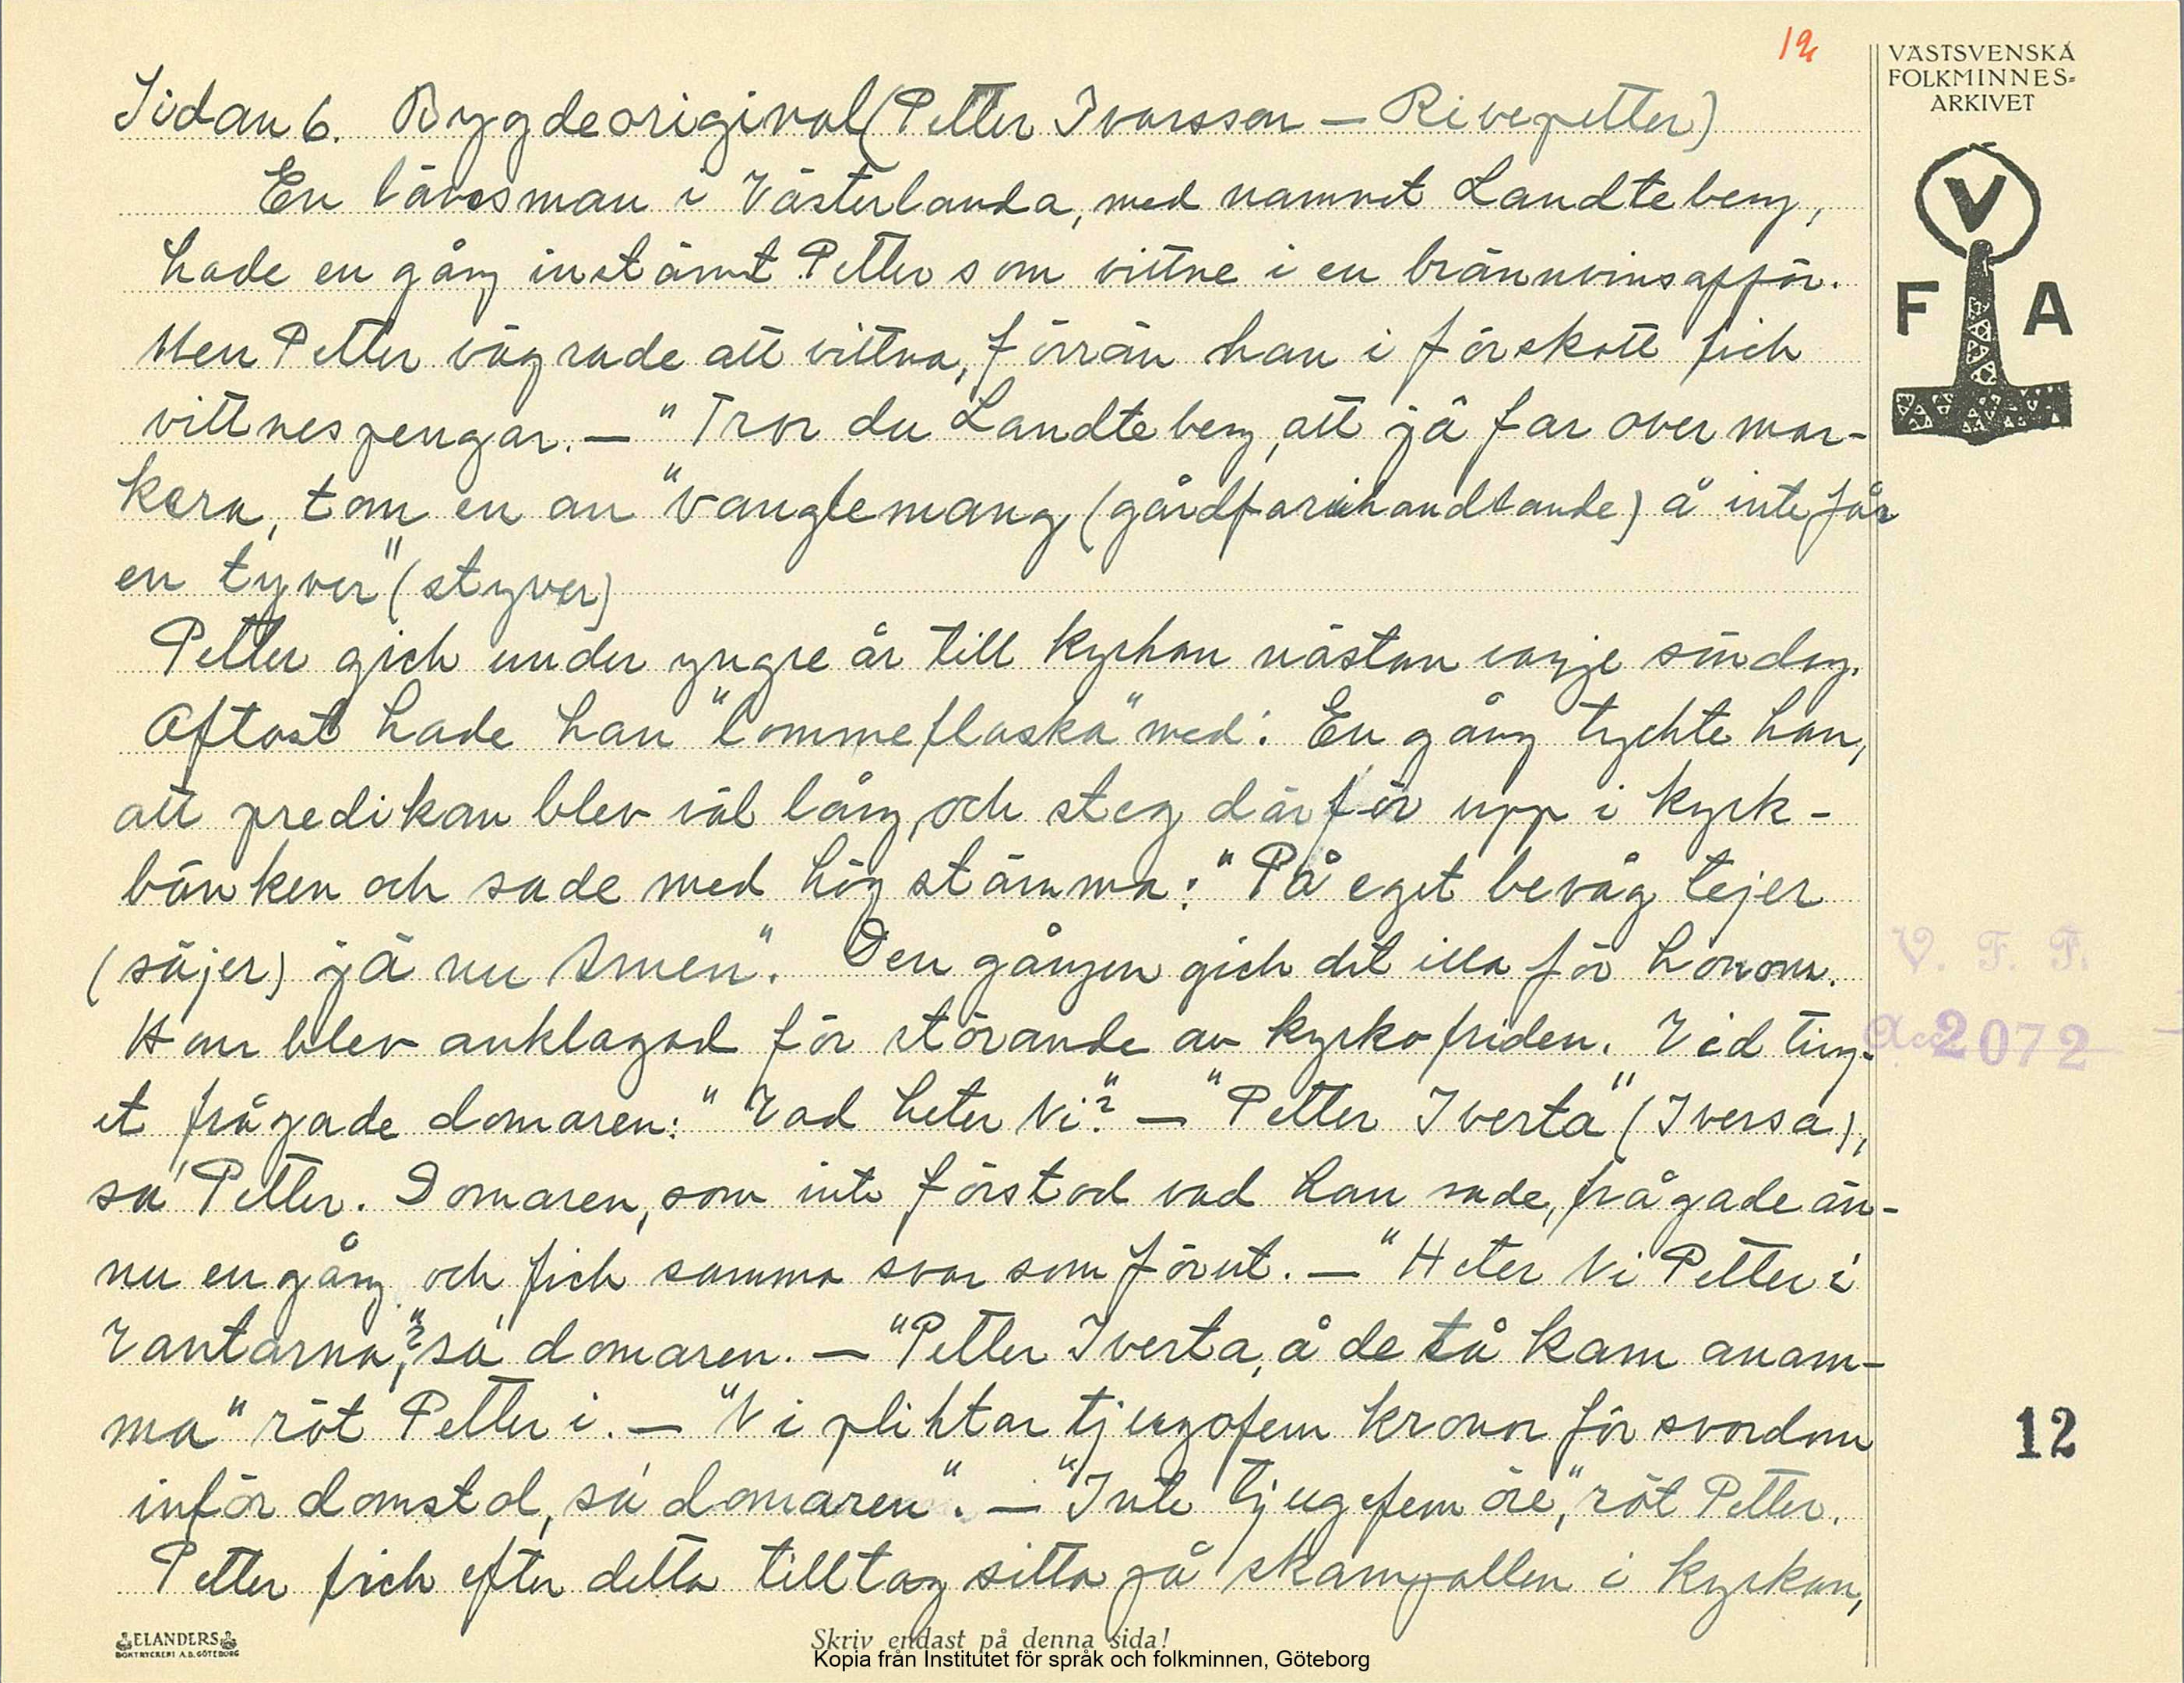 12
VÄSTSVENSKA
FOLKMINNES=
ARKIVET
V
F A
Sidan 6. Bygdeoriginal (Petter Ivarsson — Rivepetter)
En länsman i Västerlanda, med namnet Landteberg,
hade en gång instämt Petter som vittne i en brännvinsaffär.
Men Petter vägrade att vittna, förrän han i förskott fick
vittnespengar. — "Tror du Landteberg, att jä far over mar-
kera, tom en an "vanglemang (gårdfarihandlande) å inte får
en tyver" (styver)
Petter gick under yngre år till kyrkan nästan varje söndag.
Oftast hade han "lommeflaska" med. En gång tyckte han,
att predikan blev väl lång, och steg därför upp i kyrk-
bänken och sade med hög stämma: "På eget bevåg tejer
(säjer) jä nu Amen". Den gången gick det illa för honom.
Han blev anklagad för störande av kyrkofriden. Vid ting-
et frågade domaren: "Vad heter Ni?" — "Petter Iverta" (Iversa),
sa' Petter. Domaren, som inte förstod vad han sade, frågade än-
nu en gång och fick samma svar som förut. — "Heter Ni Petter i
Vantarna?", sa' domaren. — "Petter Iverta, å de tå kam anam-
ma" röt Petter i. — "Ni plihtar tjugofem kronor för svordom
inför domstol, sa' domaren". — "Inte tjugefem öre", röt Petter.
Petter fick efter detta tilltag sitta på skampallen i kyrkan,
V. F. F.
Acc 2072
12
ELANDERS
BOKTRYCKERI A.B. GÖTEBORG
Skriv endast på denna sida!
Kopia från Institutet för språk och folkminnen, Göteborg